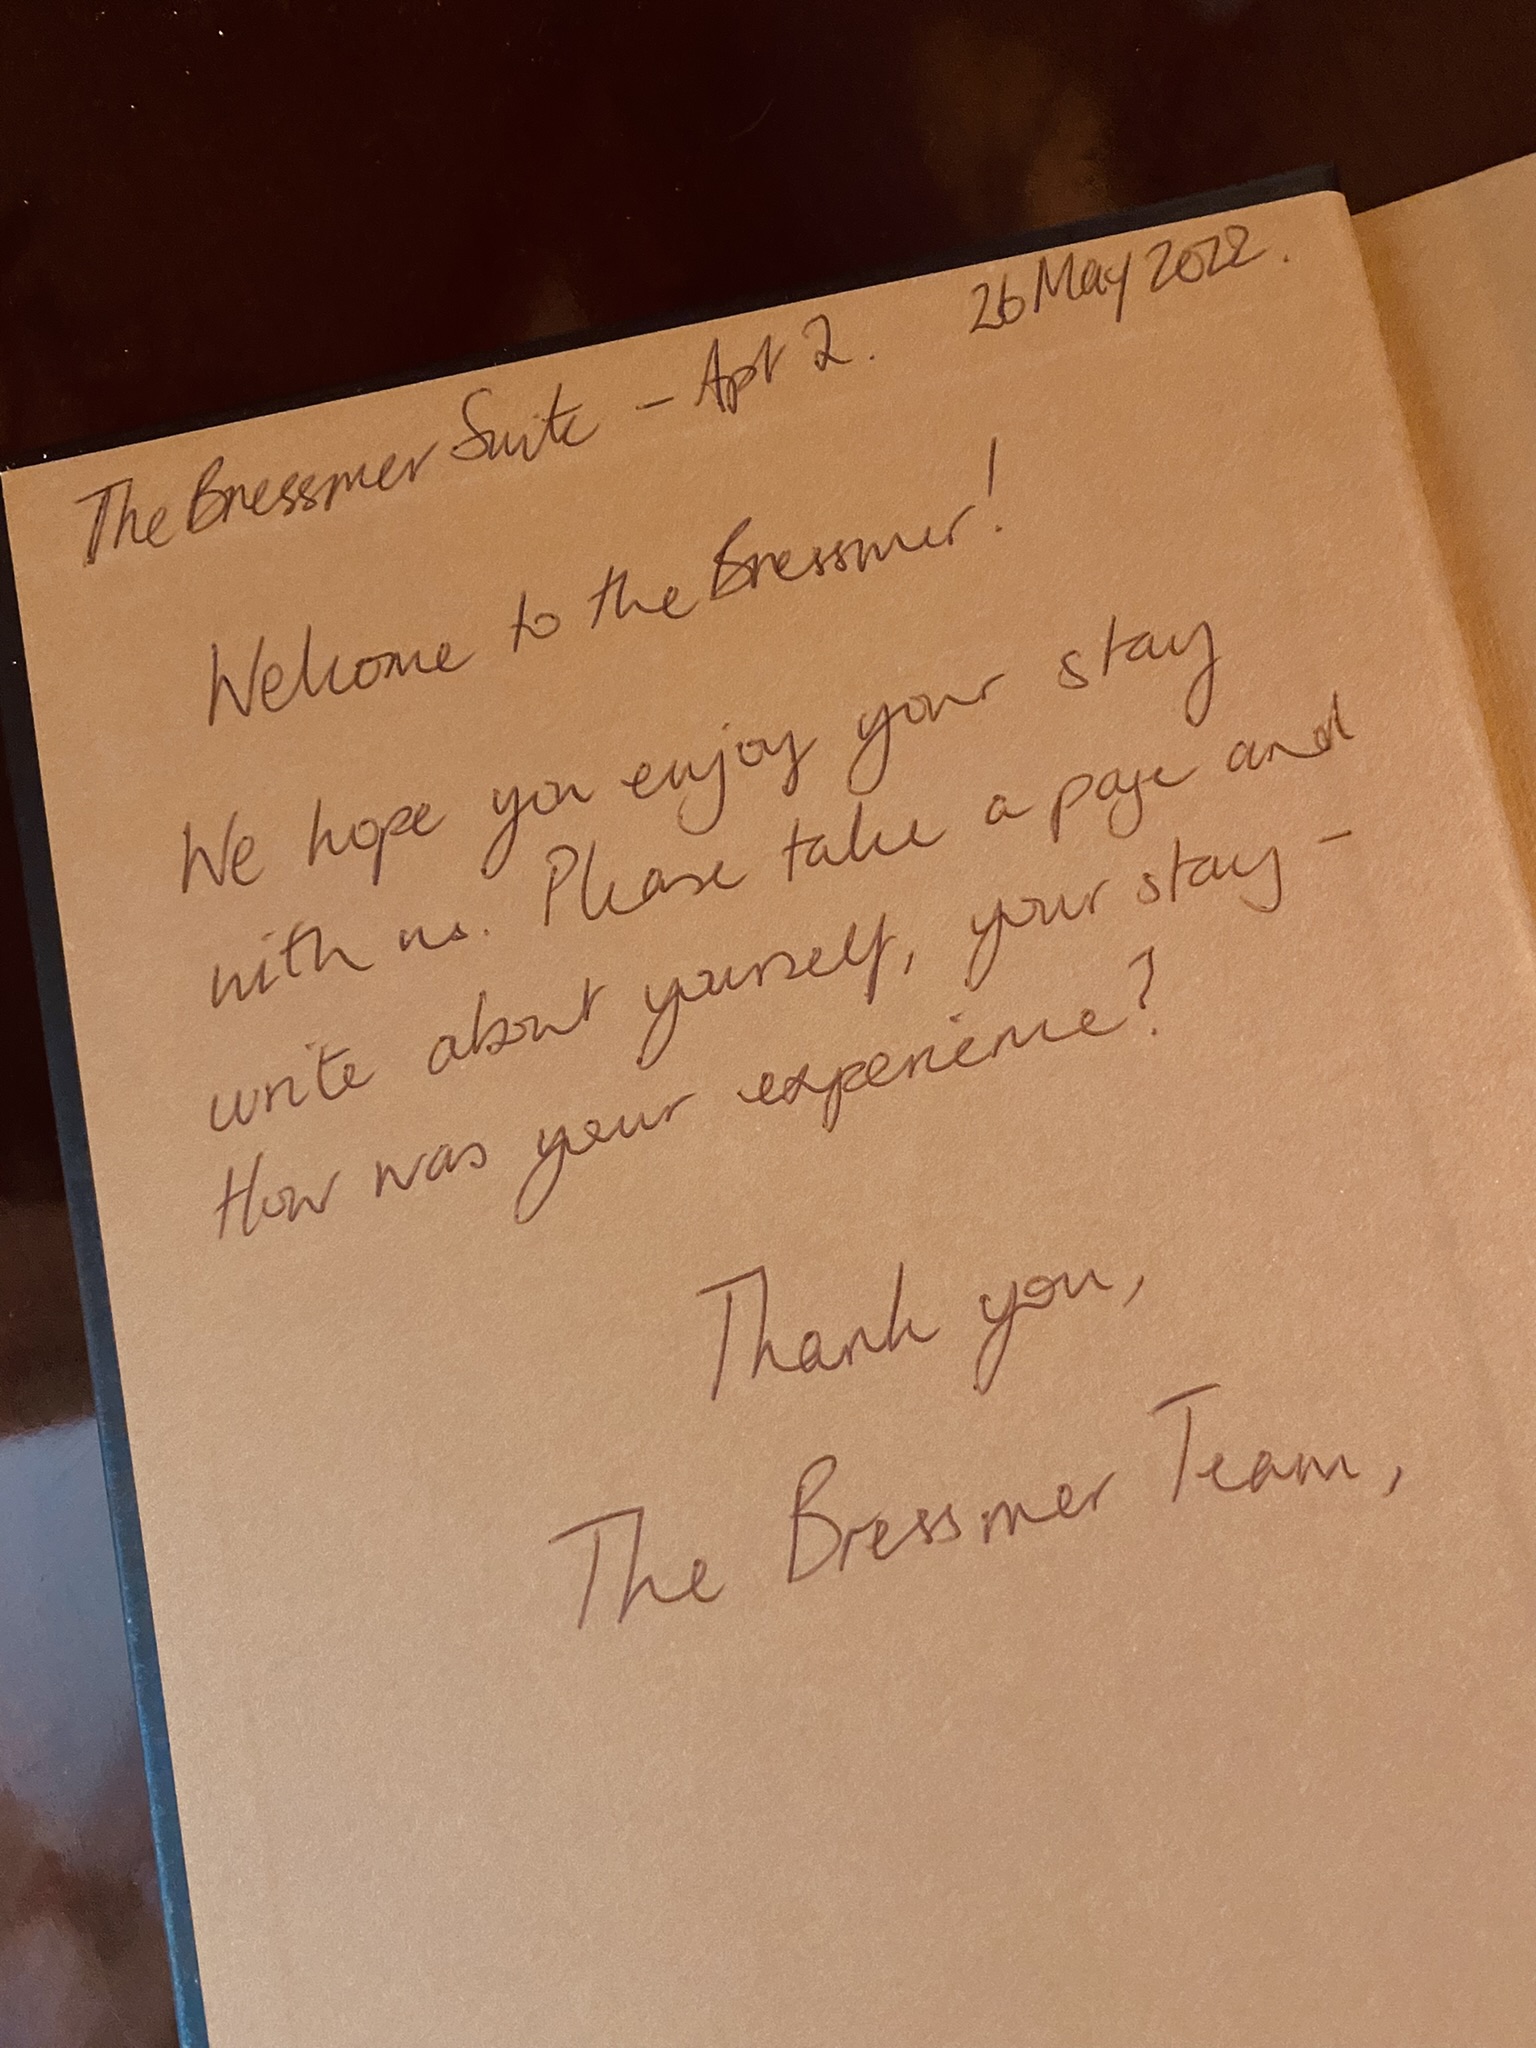 The Bressmer Suite - Apt 2. 26 May 2022.
Welcome to the Bressmer!
We hope you enjoy your stay
with us. Please take a page and
write about yourself, your stay -
How was your experience?
Thank you,
The Bressmer Team,